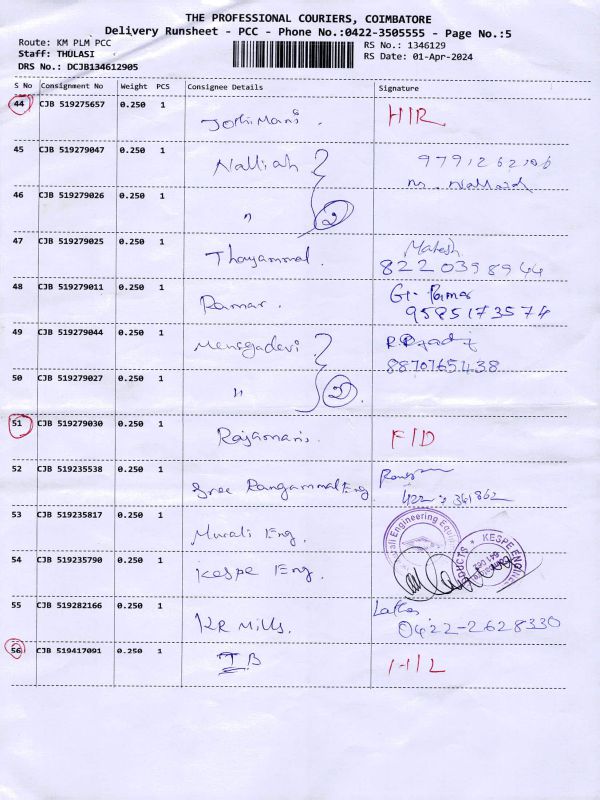 THE PROFESSIONAL COURIERS, COIMBATORE
Delivery Runsheet - PCC - Phone No.:0422-3505555 - Page No.:5
Route: KM PLM PCC
RS No.: 1346129
Staff: THULASI
RS Date: 01-Apr-2024
DRS No.: DCJB134612905
S No Consignment No Weight PCS Consignee Details Signature
44 CJB 519275657 0.250 1 Jothimani. H/R
45 CJB 519279047 0.250 1 Nalliah
46 CJB 519279026 0.250 1 " 2
47 CJB 519279025 0.250 1 Thayammal. Mahesh
8220398944
48 CJB 519279011 0.250 1 Ramar. G. Ramar
9585173574
49 CJB 519279044 0.250 1
8870765438
50 CJB 519279027 0.250 1 " 2
51 CJB 519279030 0.250 1 Rajamani. F/D
52 CJB 519235538 0.250 1 Sree Rangammal Eng
53 CJB 519235817 0.250 1 Murali Eng.
54 CJB 519235790 0.250 1 Kespe Eng.
55 CJB 519282166 0.250 1 KR Mills. Latha
0422-2628330
56 CJB 519417091 0.250 1 IB